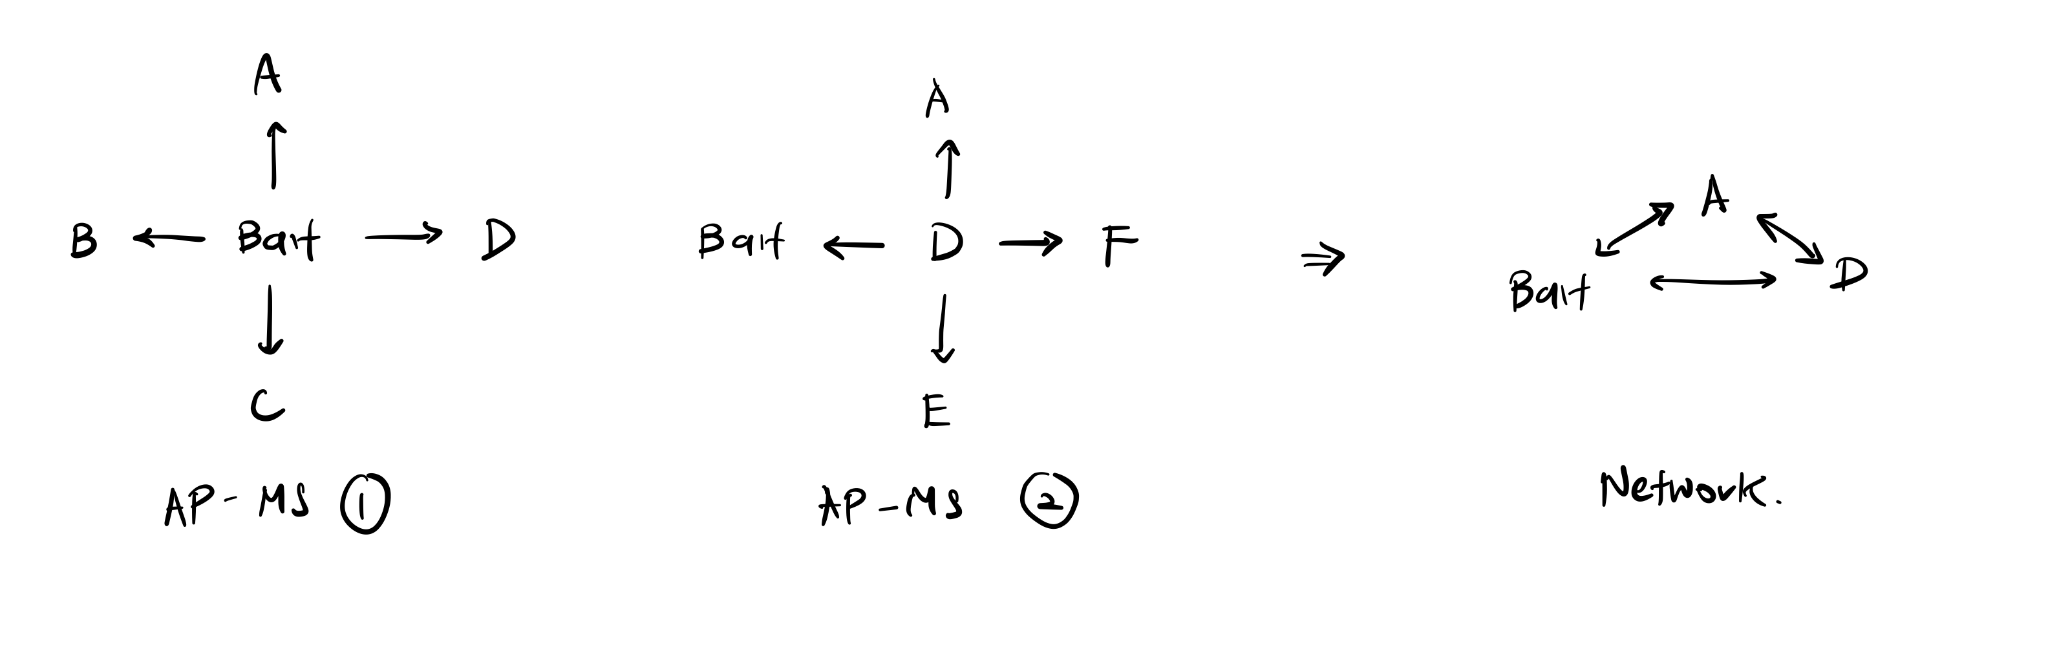 A
B ← Bait → D
C
AP-MS ①
A
Bait ← D → F
E
AP-MS ②
⇒
A
Bait ↔ D
Network.